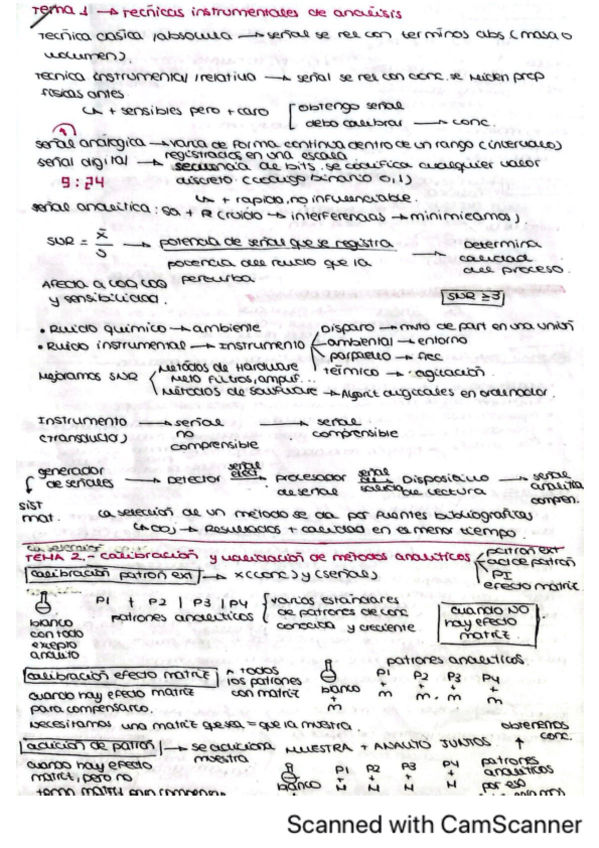 Tema 1 → Técnicas instrumentales de análisis
Tecnica clasica /absoluta → señal se rel con terminos abs (masa o
volumen).
Tecnica instrumental/relativa → señal se rel con conc. se miden prop
fisicas antes.
↳ + sensibles pero + caro [obtengo señal
debo calibrar → conc.
señal analógica → varia de forma continua dentro de un rango (intervalo)
registrados en una escala.
señal digital → secuencia de bits. se codifica cualquier valor
9:24 discreto (codigo binario 0,1)
↳ + rapida, no influenciable.
señal analitica: Sa + R (ruido → interferencias → minimizamos)
SNR = x̄/s → potencia de señal que se registra / potencia del ruido que la perturba → Determina calidad del proceso.
Afecta a LOD, LOQ
y sensibilidad.
SNR ≥3
• Ruido quimico → ambiente
• Ruido instrumental → Instrumento
Disparo → mvto de part en una unión
ambiental → entorno
parpadeo → frec
térmico → agitación
Mejoramos SNR
Métodos de Hardware
filtros, amplif...
Métodos de software → Algorit. en ordenador.
Instrumento → señal → señal
(transductor) no comprensible
comprensible
generador de señales → Detector señal elect → procesador de señal → señal Dispositivo de lectura → señal analitica compren.
sist
mat.
La selección de un método se da por fuentes bibliograficas
→ Resultados + calidad en el menor tiempo.
TEMA 2.- Calibración y validación de métodos analíticos
patron ext
adi de patron
PI
efecto matriz
calibración patron ext → x(conc) y (señal)
P1 | P2 | P3 | P4
patrones analiticos
varios estandares
de patrones de conc
conocida y creciente
cuando NO
hay efecto
matriz
blanco
con todo
excepto
analito
calibración efecto matriz → todos
los patrones
con matriz
cuando hay efecto matriz
para compensarlo.
patrones analiticos.
blanco P1 P2 P3 P4
+ + + + +
m m m m m
necesitamos una matriz que sea = que la muestra.
obtenemos
conc.
adición de patrón → se adiciona MUESTRA + ANALITO JUNTOS
muestra
cuando hay efecto
matriz, pero no
tengo matriz para compensar
blanco P1 P2 P3 P4
+ + + +
M M M M
patrones
analiticos
por eso
Scanned with CamScanner